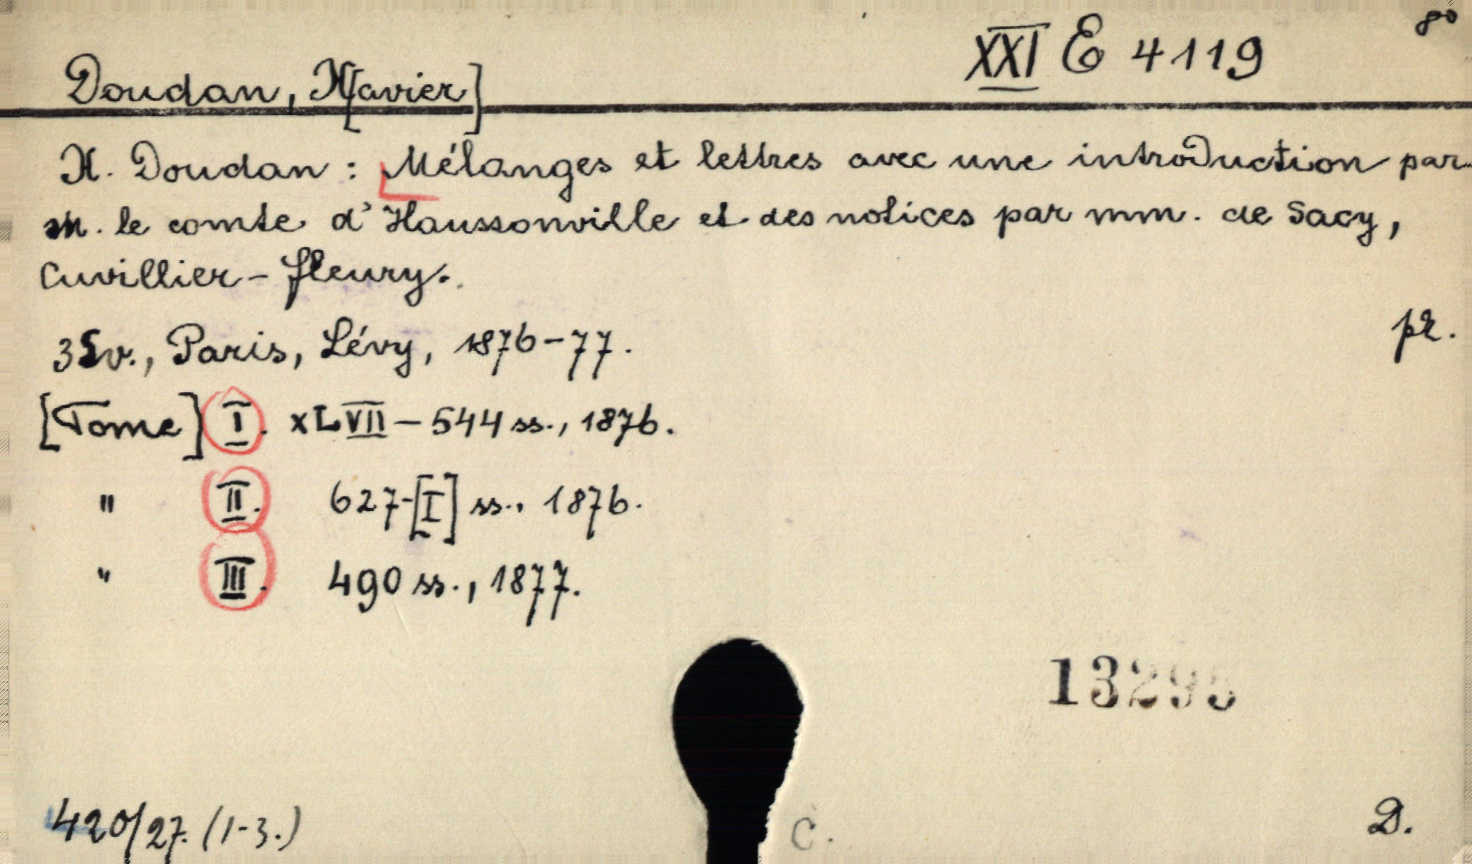 8°
XXI E 4119
Doudan, X[avier]
X. Doudan : Mélanges et lettres avec une introduction par
M. le comte d'Haussonville et des notices par mm. de Sacy,
Cuvillier-Fleury.
3 v., Paris, Lévy, 1876-77.
pr.
[Tome] I. XLVII - 544 ss., 1876.
" II. 627-[I] ss., 1876.
" III. 490 ss., 1877.
13295
420/27. (1-3.)
C.
D.